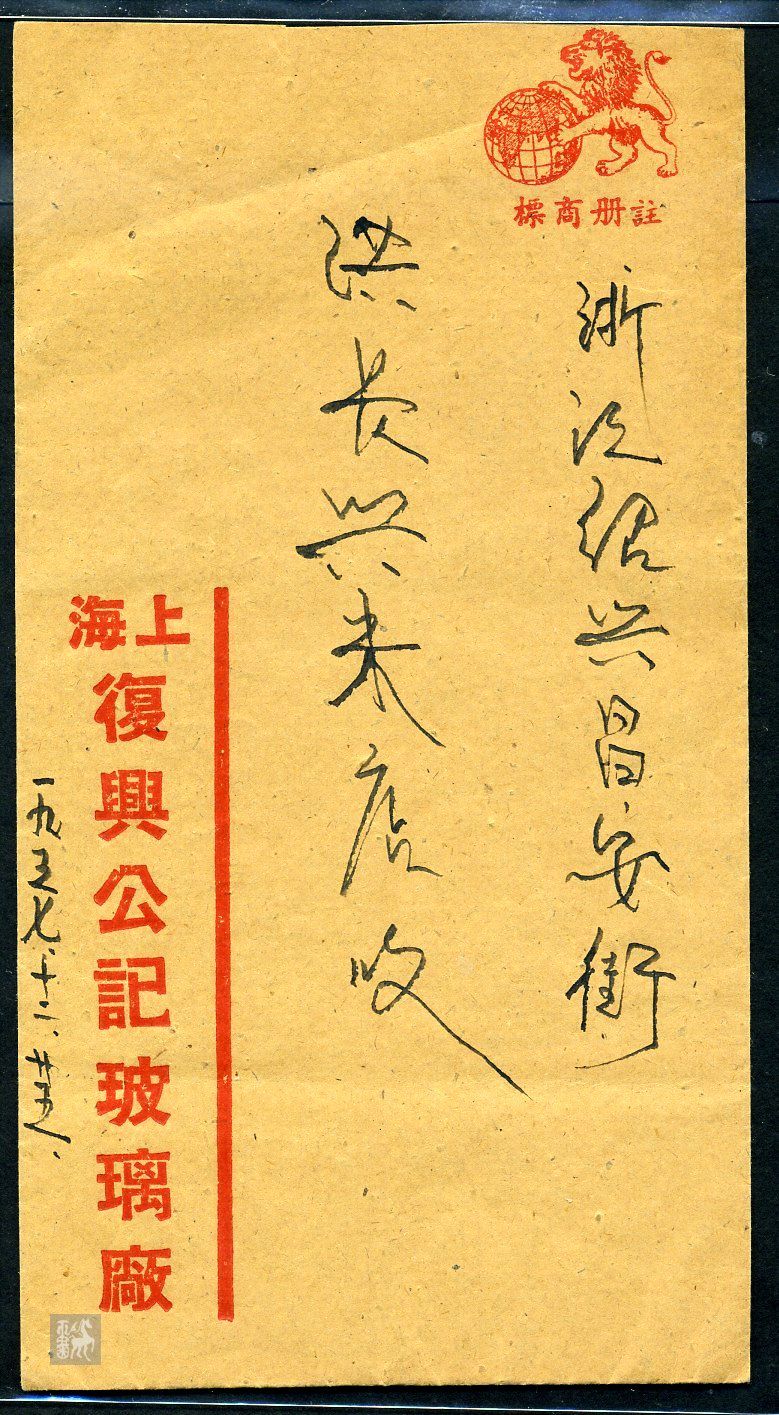 註册商標
浙江绍兴昌安街
洪长兴米店收
上海
復興公記玻璃廠
一九五七.十二.